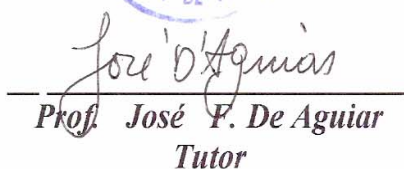 DE
José D'Aguiar
Prof. José F. De Aguiar
Tutor